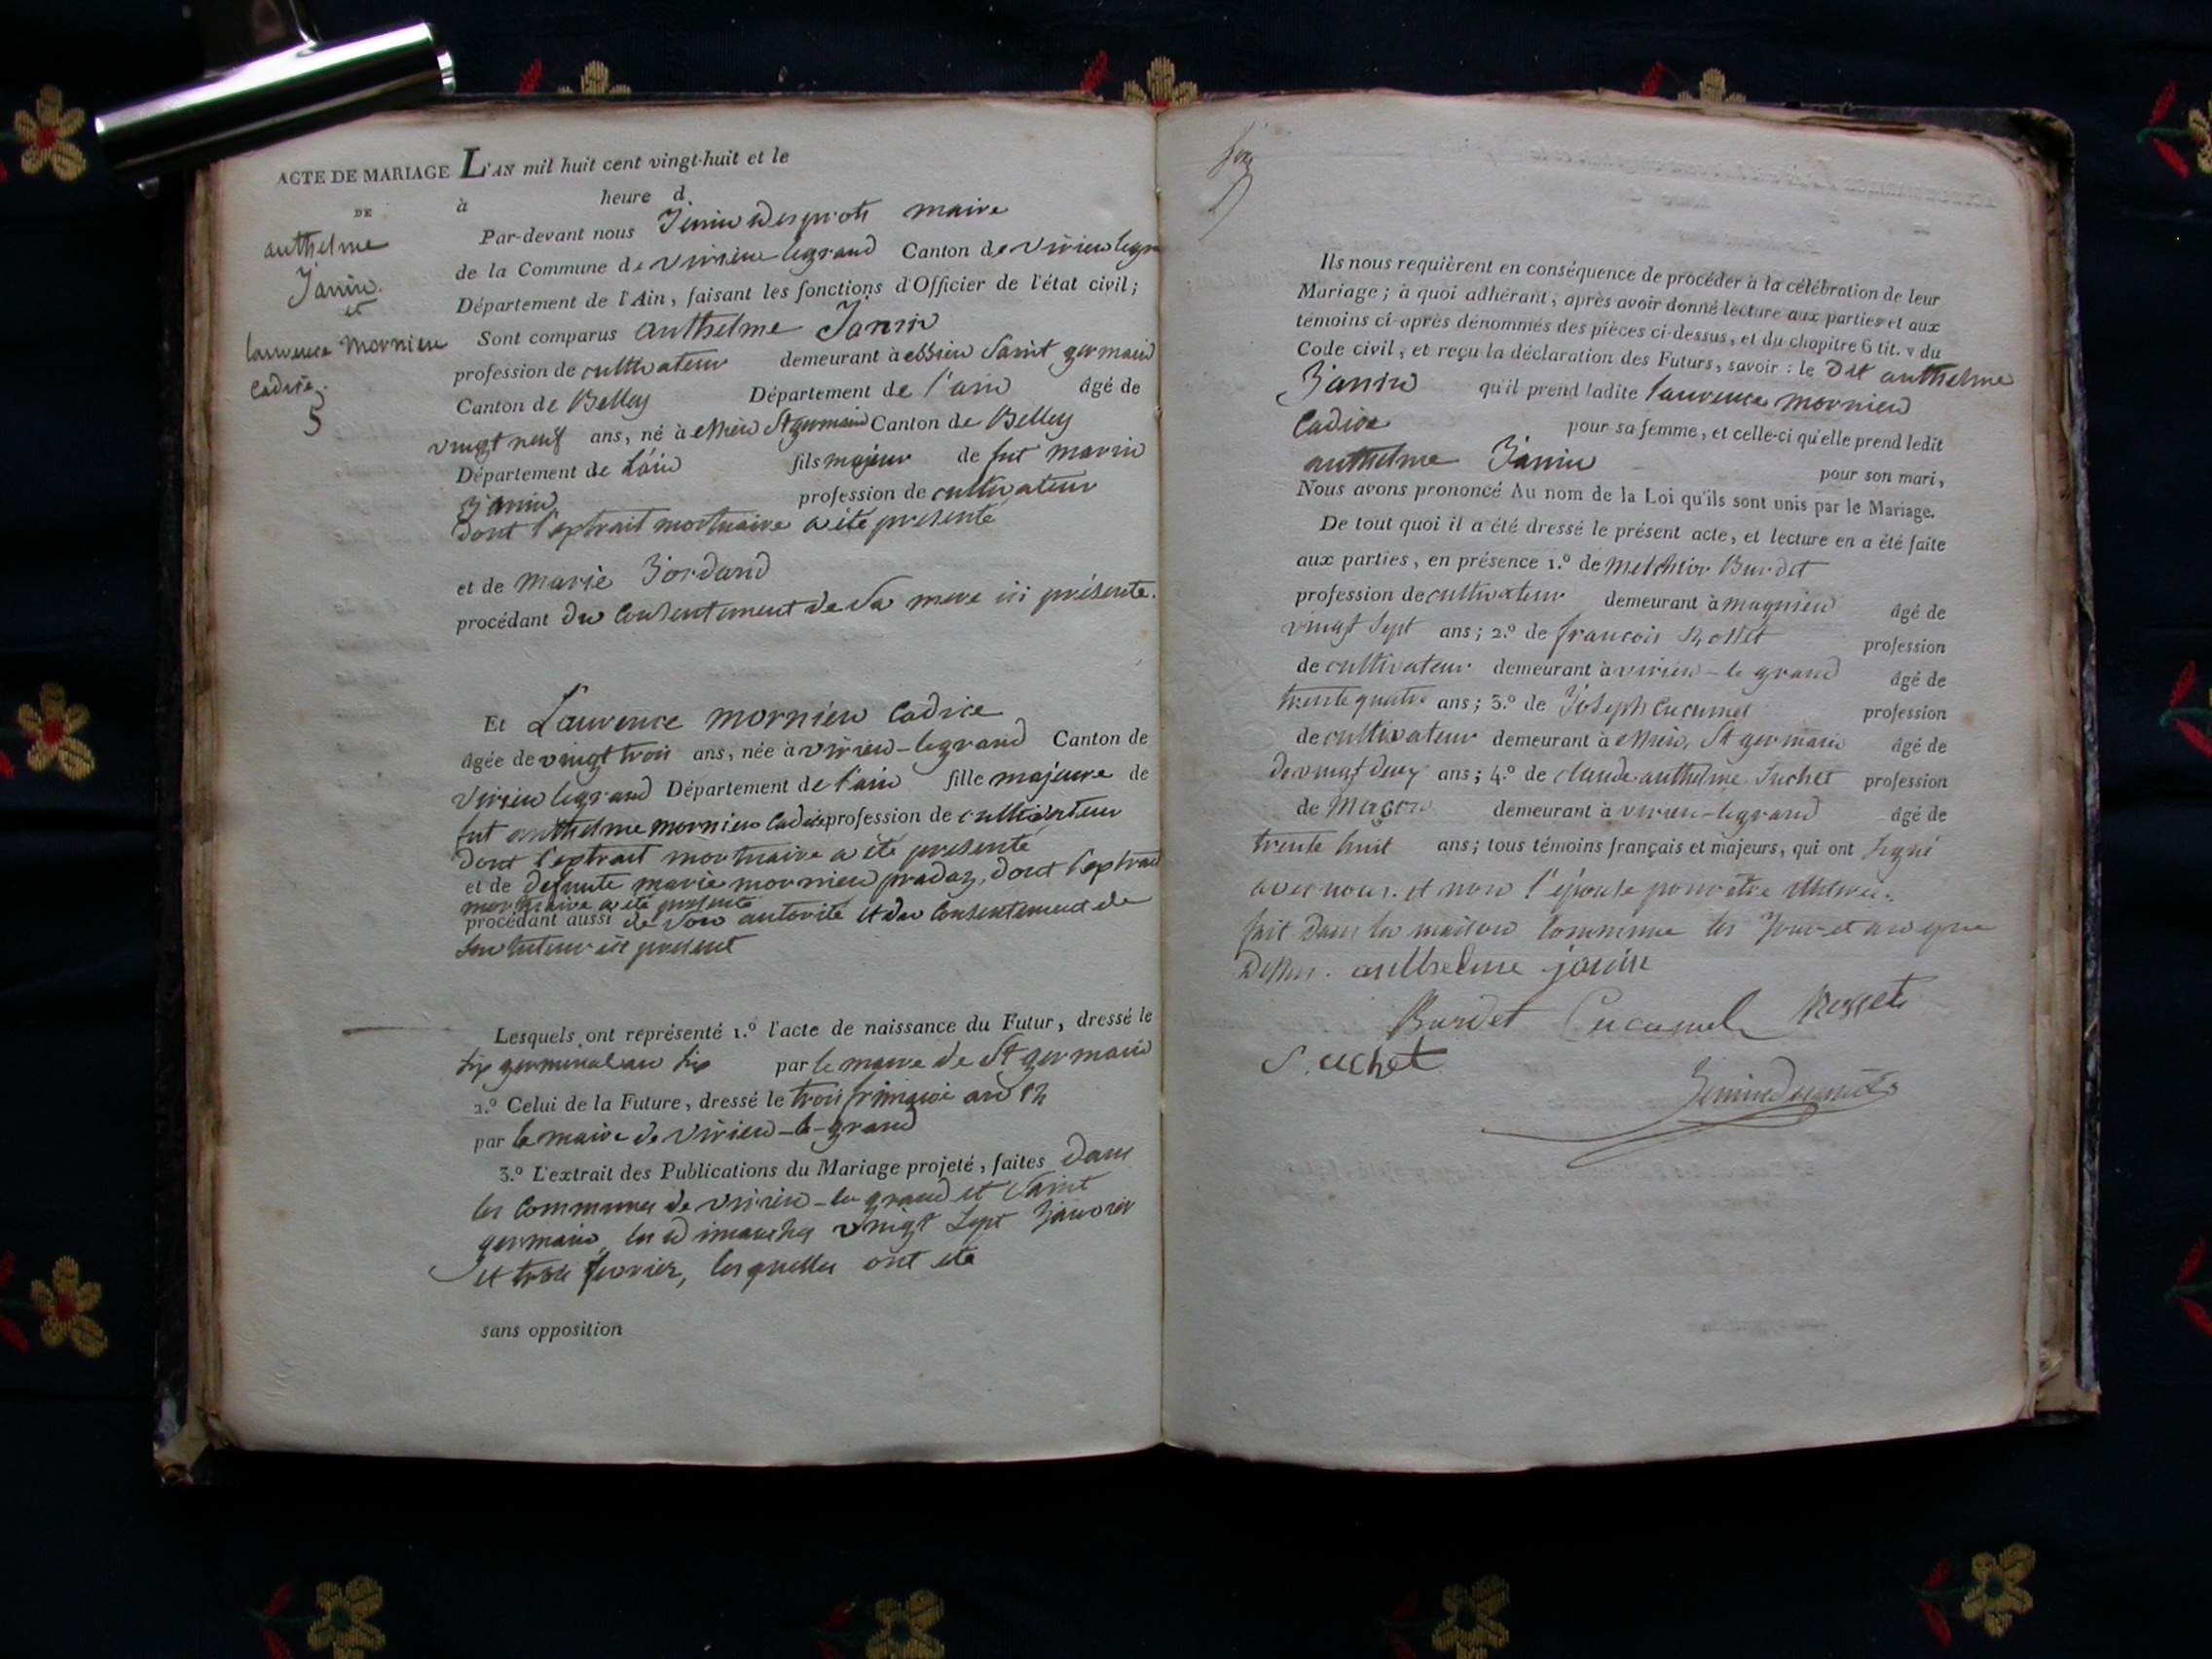 ACTE DE MARIAGE L'AN mil huit cent vingt-huit et le
DE
à heure d
anthelme
Janin
et
laurence Mornieu
Cadice
5
Par-devant nous maire
de la Commune de virieu legrand Canton de virieu legr
Département de l'Ain, faisant les fonctions d'Officier de l'état civil;
Sont comparus anthelme Janin
profession de cultivateur demeurant à essieu Saint germain
Canton de Belley Département de l'ain âgé de
vingt neuf ans, né à essieu St germain Canton de Belley
Département de L'ain fils majeur de fut marin
Janin profession de cultivateur
dont l'extrait mortuaire a été presenté
et de marie Jordand
procédant du Consentement de Sa mere ici présente.
Et Laurence mornieu Cadice
âgée de vingt trois ans, née à virieu-legrand Canton de
virieu legrand Département de l'ain fille majeure de
fut anthelme mornieu Cadice profession de cultivateur
dont l'extrait mortuaire a été presenté
et de defunte marie mornieu pradaz, dont l'extrait
mortuaire a été presenté
procédant aussi de Son autorité et du Consentement de
Son tuteur ici present
Lesquels ont représenté 1.º l'acte de naissance du Futur, dressé le
Six germinal an Six par le maire de St germain
2.º Celui de la Future, dressé le trois frimaire an
par le maire de Virieu-le-grand
3.º L'extrait des Publications du Mariage projeté, faites Dans
les Communes de virieu-le grand et Saint
germain, les dimanches vingt Sept Janvier
et trois fevrier, lesquelles ont été
sans opposition
Ils nous requièrent en conséquence de procéder à la célébration de leur
Mariage; à quoi adhérant, après avoir donné lecture aux parties et aux
témoins ci-après dénommés des pièces ci-dessus, et du chapitre 6 tit. v du
Code civil, et reçu la déclaration des Futurs, savoir: le Dit anthelme
Janin qu'il prend ladite laurence mornieu
Cadice pour sa femme, et celle-ci qu'elle prend ledit
anthelme Janin pour son mari,
Nous avons prononcé Au nom de la Loi qu'ils sont unis par le Mariage.
De tout quoi il a été dressé le présent acte, et lecture en a été faite
aux parties, en présence 1.º de Melchior Burdet
profession de cultivateur demeurant à magnieu âgé de
vingt Sept ans; 2.º de francois Rosset profession
de cultivateur demeurant à virieu-le grand âgé de
trente quatre ans; 3.º de Joseph Cucumel profession
de cultivateur demeurant à essieu St germain âgé de
de vingt deux ans; 4.º de claude anthelme Suchet profession
de Maçon demeurant à virieu-legrand âgé de
trente huit ans; tous témoins français et majeurs, qui ont Signé
avec nous. et non l'épouse pour être illitrée.
fait dans la maison Commune les Jour et an que
Dessus. anthelme janin
Burdet Cucumel Rosset
Suchet